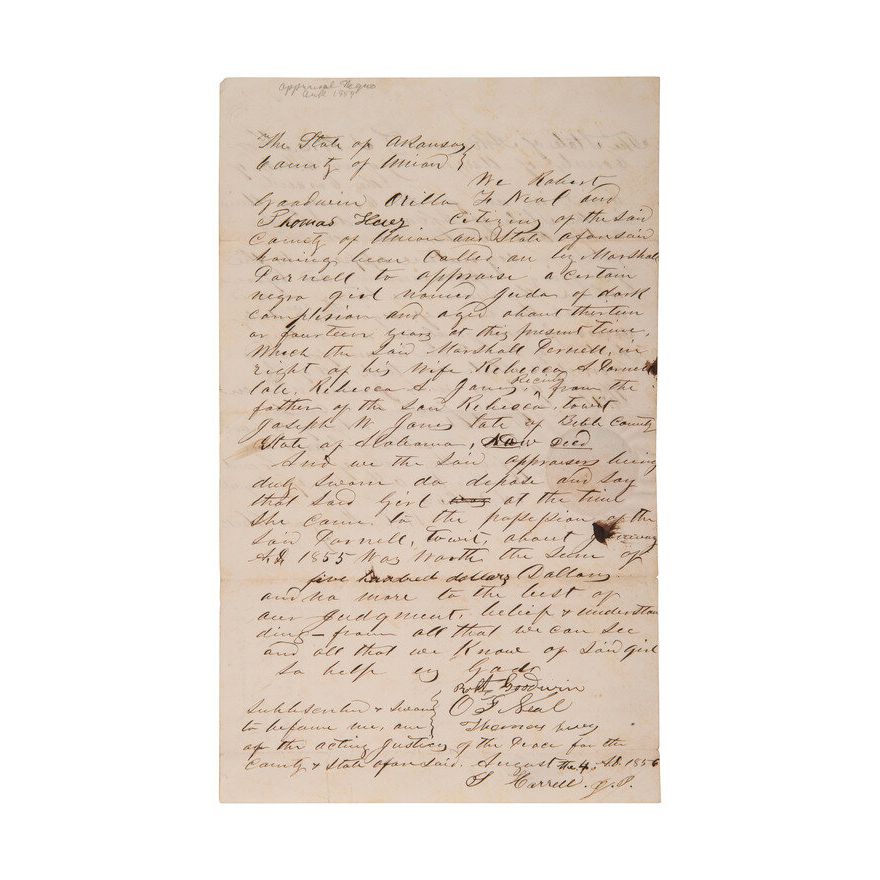 appraisal Negro
The State of Arkansas,
County of Union }
We Robert
Goodwin Orilla F Neal and
Thomas Ivey Citizens of the said
County of Union and State aforesaid
having been called on by Marshall
Parnell to appraise a certain
negro girl named Juda of dark
complixion and aged about thirteen
or fourteen years at this present time,
Which the said Marshall Parnell, in
right of his wife Rebecca S Parnell
late, Rebecca S Jones, recived from the
father of the said Rebecca, towit
Joseph W Jones late of Bibb County
State of Alabama, now deed
And we the said appraisers being
duly sworn do depose and say
that said Girl was at the time
She came to the possession of the
said Parnell, towit, about
A.D. 1855 Was worth the sum of
five hundred dollars Dollars.
and no more to the best of
our Judgment, belief & understan
ding – from all that we can see
and all that we Know of said girl
So help us God
Robt Goodwin
Subscribed & sworn } O F Neal
to before me, one } Thomas Ivey
of the acting Justices of the Peace for the
County & State aforesaid. August the 4. A.D. 1856
Harrell J.P.